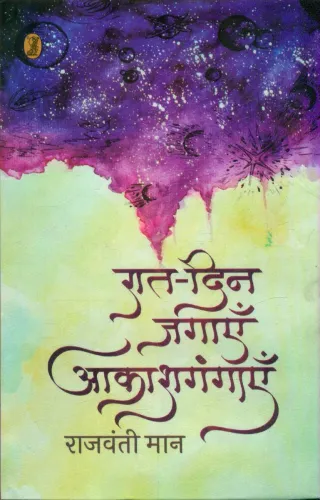 रात-दिन
जगाएँ
आकाशगंगाएँ
राजवंती मान